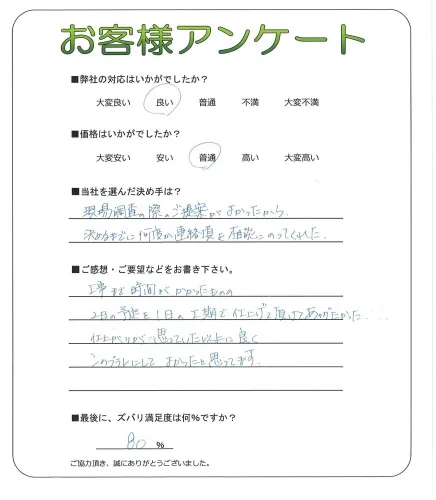 お客様アンケート
■弊社の対応はいかがでしたか？
大変良い 良い 普通 不満 大変不満
■価格はいかがでしたか？
大変安い 安い 普通 高い 大変高い
■当社を選んだ決め手は？
現場調査の際のご提案がよかったから.
決めるまでに何度か連絡頂き相談にのってくれた.
■ご感想・ご要望などをお書き下さい。
工事まで時間がかかったものの
2日の予定を1日の工期で仕上げて頂けてありがたかった
仕上がりが思っていた以上に良く
このプランにしてよかったと思ってます.
■最後に、ズバリ満足度は何％ですか？
80 %
ご協力頂き、誠にありがとうございました。